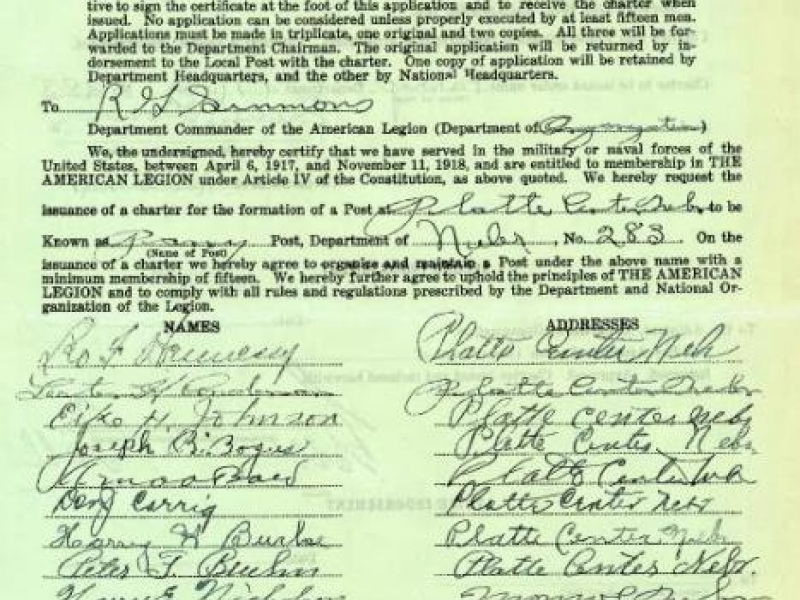 tive to sign the certificate at the foot of this application and to receive the charter when
issued. No application can be considered unless properly executed by at least fifteen men.
Applications must be made in triplicate, one original and two copies. All three will be for-
warded to the Department Chairman. The original application will be returned by in-
dorsement to the Local Post with the charter. One copy of application will be retained by
Department Headquarters, and the other by National Headquarters.
To R G Simmons
Department Commander of the American Legion (Department of )
We, the undersigned, hereby certify that we have served in the military or naval forces of the
United States, between April 6, 1917, and November 11, 1918, and are entitled to membership in THE
AMERICAN LEGION under Article IV of the Constitution, as above quoted. We hereby request the
issuance of a charter for the formation of a Post at Platte Center Nebr to be
Known as Post, Department of Nebr, No. 283. On the
(Name of Post)
issuance of a charter we hereby agree to organize and maintain a Post under the above name with a
minimum membership of fifteen. We hereby further agree to uphold the principles of THE AMERICAN
LEGION and to comply with all rules and regulations prescribed by the Department and National Or-
ganization of the Legion.
NAMES ADDRESSES
Hennessy Platte Center Neb
Platte Center Nebr
H. Johnson Platte Center Nebr
Joseph B. Platte Center Nebr
Platte Center Neb
Carrig Platte Center Nebr
Harry H Burke Platte Center Neb
Peter F. Platte Center Nebr.
Nebr